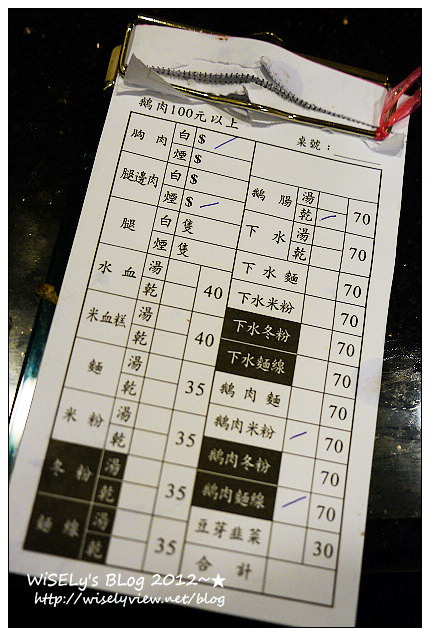 鵝肉100元以上
桌號：
胸肉 白 $
煙 $
腿邊肉 白 $
煙 $
腿 白 隻
煙 隻
水血 湯
乾 40
米血糕 湯
乾 40
麵 湯
乾 35
米粉 湯
乾 35
冬粉 湯
乾 35
麵線 湯
乾 35
鵝腸 湯
乾 70
下水 湯
乾 70
下水麵 70
下水米粉 70
下水冬粉 70
下水麵線 70
鵝肉麵 70
鵝肉米粉 70
鵝肉冬粉 70
鵝肉麵線 70
豆芽韭菜 30
合計
WiSELy's BLog 2012~★
http://wiselyview.net/blog